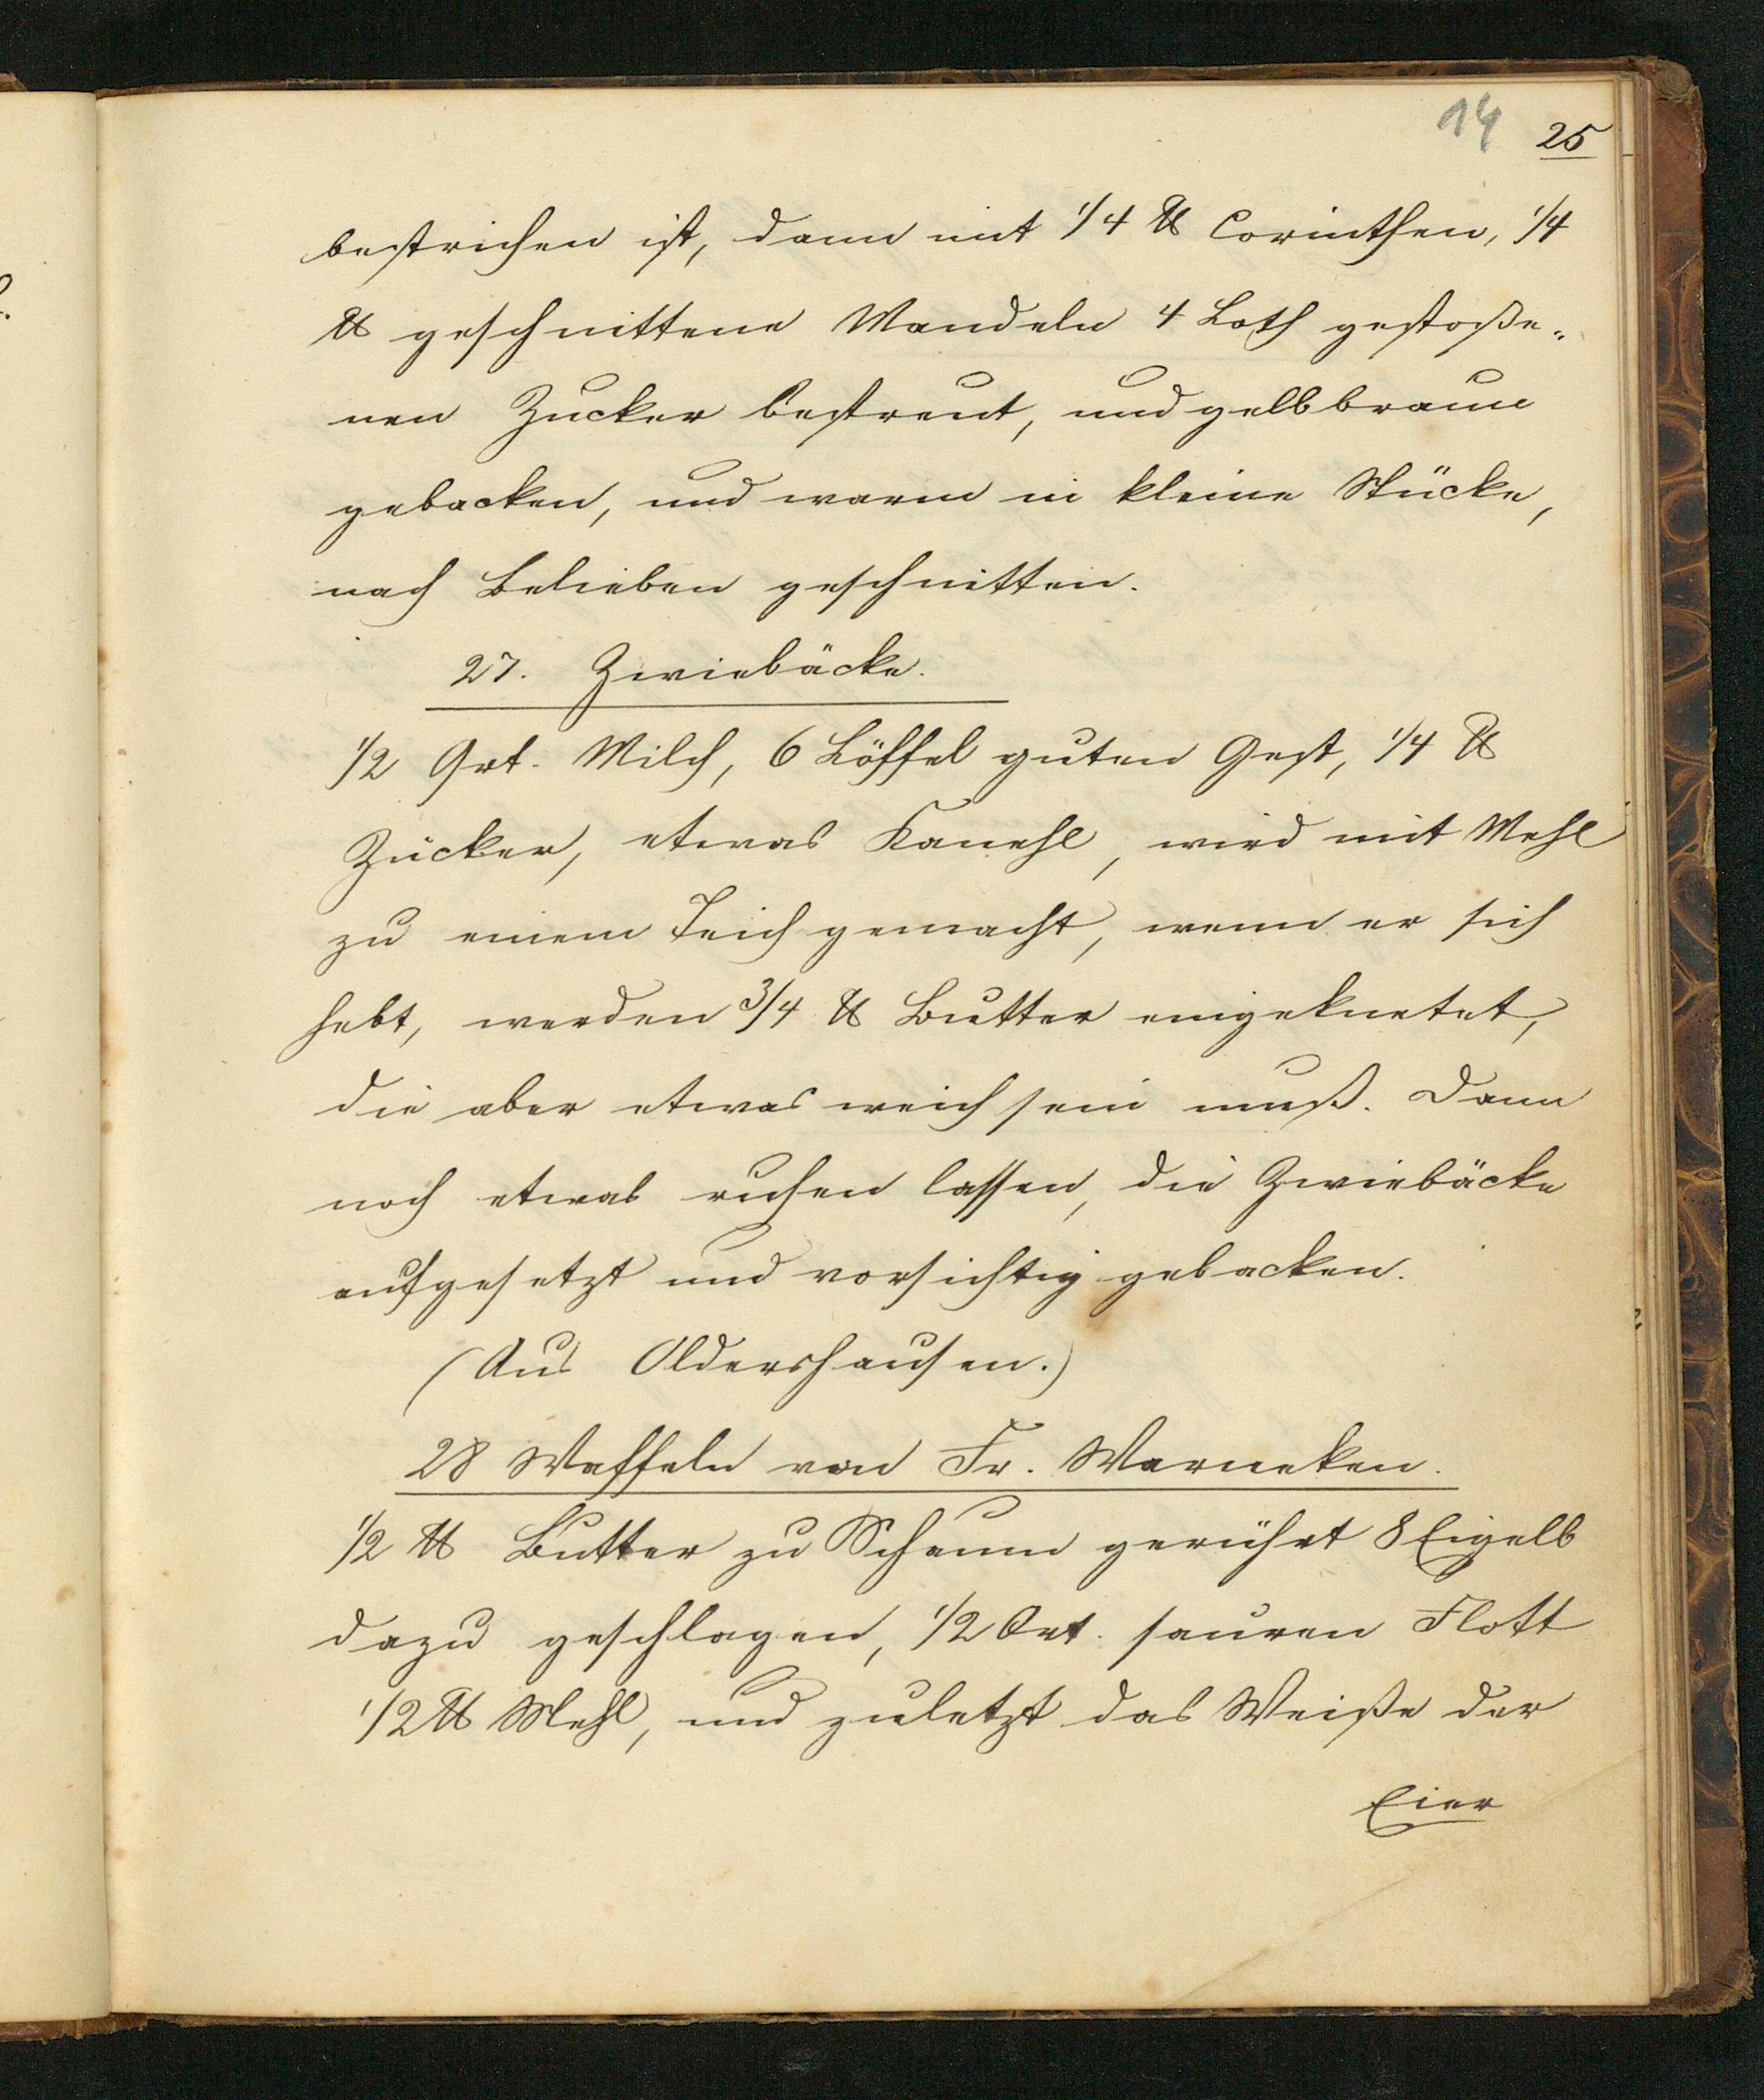 14 25
bestrichen ist, dann mit 1/4 ℔ Corinthen, 1/4
℔ geschnittene Mandeln 4 Loth gestoße-
nen Zucker bestreut, und gelbbraun
gebacken, und warm in kleine Stücke,
nach Belieben geschnitten.
27. Zwiebäcke.
1/2 Qrt. Milch, 6 Löffel guten Gest, 1/4 ℔
Zucker, etwas Kanehl, wird mit Mehl
zu einem Teich gemacht, wenn er sich
hebt, werden 3/4 ℔ Butter eingeknetet,
die aber etwas weich sein muß. Dann
noch etwas ruhen lassen, die Zwiebäcke
aufgesetzt und vorsichtig gebacken.
(Aus Oldershausen.)
28 Waffeln von Fr. Warneken.
1/2 ℔ Butter zu Schaum gerührt 8 Eigelb
dazu geschlagen, 1/2 Qrt. sauren Flott
1/2 ℔ Mehl, und zuletzt das Weiße der
Eier